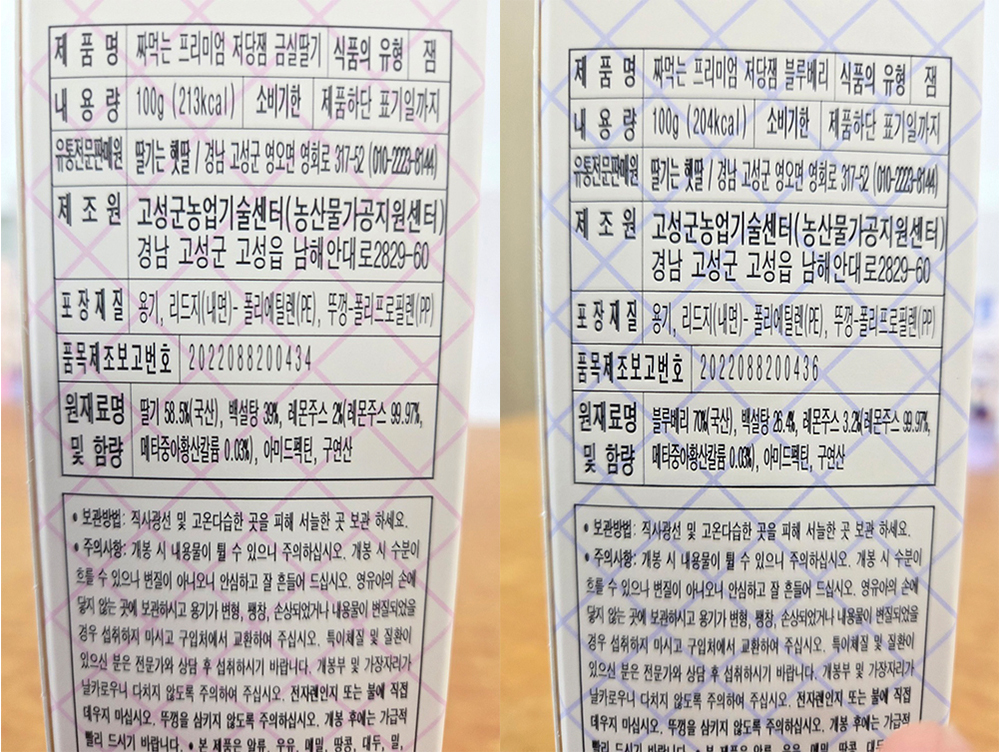 제 품 명 짜먹는 프리미엄 저당잼 금실딸기 식품의 유형 잼
내 용 량 100g (213kcal) 소비기한 제품하단 표기일까지
유통전문판매원 딸기는 햇딸 / 경남 고성군 영오면 영회로 317-52 (010-2223-8144)
제 조 원 고성군농업기술센터(농산물가공지원센터)
경남 고성군 고성읍 남해안대로2829-60
포 장 재 질 용기, 리드지(내면)- 폴리에틸렌(PE), 뚜껑-폴리프로필렌(PP)
품목제조보고번호 2022088200434
원재료명 딸기 58.5%(국산), 백설탕 39%, 레몬주스 2%(레몬주스 99.97%,
및 함량 메타중아황산칼륨 0.03%), 아미드펙틴, 구연산
• 보관방법: 직사광선 및 고온다습한 곳을 피해 서늘한 곳 보관 하세요.
• 주의사항: 개봉 시 내용물이 튈 수 있으니 주의하십시오. 개봉 시 수분이
흐를 수 있으나 변질이 아니오니 안심하고 잘 흔들어 드십시오. 영유아의 손에
닿지 않는 곳에 보관하시고 용기가 변형, 팽창, 손상되었거나 내용물이 변질되었을
경우 섭취하지 마시고 구입처에서 교환하여 주십시오. 특이체질 및 질환이
있으신 분은 전문가와 상담 후 섭취하시기 바랍니다. 개봉부 및 가장자리가
날카로우니 다치지 않도록 주의하여 주십시오. 전자렌인지 또는 불에 직접
데우지 마십시오. 뚜껑을 삼키지 않도록 주의하십시오. 개봉 후에는 가급적
빨리 드시기 바랍니다. • 본 제품은 알류, 우유, 메밀, 땅콩, 대두, 밀,
제 품 명 짜먹는 프리미엄 저당잼 블루베리 식품의 유형 잼
내 용 량 100g (204kcal) 소비기한 제품하단 표기일까지
유통전문판매원 딸기는 햇딸 / 경남 고성군 영오면 영회로 317-52 (010-2223-8144)
제 조 원 고성군농업기술센터(농산물가공지원센터)
경남 고성군 고성읍 남해안대로2829-60
포 장 재 질 용기, 리드지(내면)- 폴리에틸렌(PE), 뚜껑-폴리프로필렌(PP)
품목제조보고번호 2022088200436
원재료명 블루베리 70%(국산), 백설탕 26.4%, 레몬주스 3.2%(레몬주스 99.97%,
및 함량 메타중아황산칼륨 0.03%), 아미드펙틴, 구연산
• 보관방법: 직사광선 및 고온다습한 곳을 피해 서늘한 곳 보관 하세요.
• 주의사항: 개봉 시 내용물이 튈 수 있으니 주의하십시오. 개봉 시 수분이
흐를 수 있으나 변질이 아니오니 안심하고 잘 흔들어 드십시오. 영유아의 손에
닿지 않는 곳에 보관하시고 용기가 변형, 팽창, 손상되었거나 내용물이 변질되었을
경우 섭취하지 마시고 구입처에서 교환하여 주십시오. 특이체질 및 질환이
있으신 분은 전문가와 상담 후 섭취하시기 바랍니다. 개봉부 및 가장자리가
날카로우니 다치지 않도록 주의하여 주십시오. 전자렌인지 또는 불에 직접
데우지 마십시오. 뚜껑을 삼키지 않도록 주의하십시오. 개봉 후에는 가급적
빨리 드시기 바랍니다. • 본 제품은 알류, 우유, 메밀, 땅콩, 대두